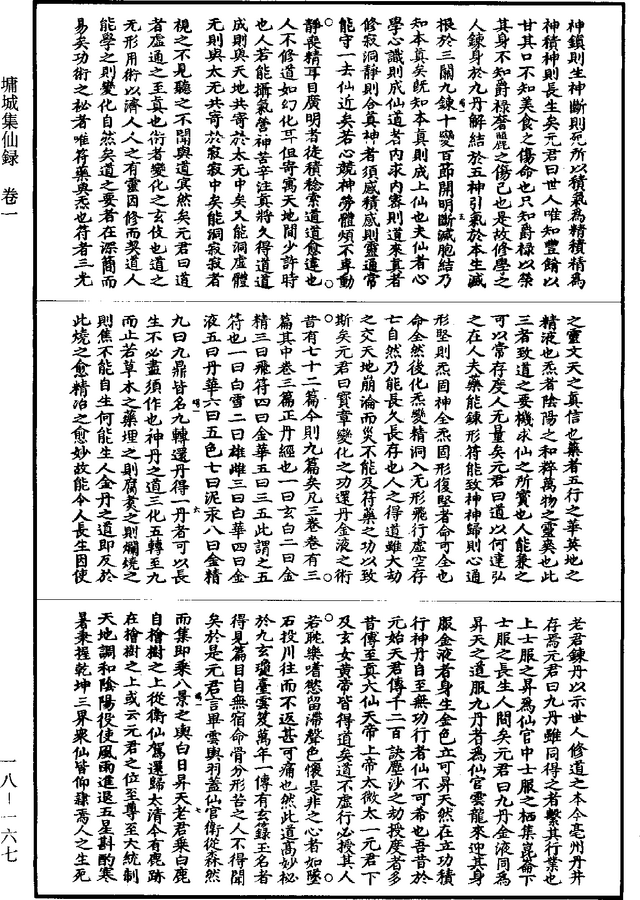 神鎮則生神斷則死所以積氣為精積精為
神積神則長生矣元君曰世人唯知豐餚以
甘其口不知美食之傷命也只知爵祿以榮
其身不知爵祿奢麗之傷己也是故修學之
人鍊身於九丹解結於五神引氣於本生滅
根於三關九鍊十變百節開明斷滅胞結乃
知本真矣旣知本真則成上仙也夫仙者心
學心識則成仙道者內求內密則道來真者
修寂洞靜則合真神者須感積感則靈通常
能守一去仙近矣若心競神勞體煩不專動
靜喪精耳目廣明者徒積稔索道道愈遠也
人不修道如幻化耳但寄寓天地間少許時
也人若能攝氣營神苦辛注真將久得道道
成則與天地共寄於太无中矣又能洞虛體
无則與太无共寄於寂寂中矣能洞寂寂者
視之不見聽之不聞與道冥然矣元君曰道
者虛通之至真也術者變化之玄伎也道之
无形用術以濟人人之有靈因修而契道人
能學之則變化自然矣道之要者在深簡而
易矣功術之秘者唯符藥與炁也符者三光
之靈文天之真信也藥者五行之華英地之
精液也炁者陰陽之和粹萬物之靈爽也此
三者致道之要機求仙之所寶也人能兼之
可以常存度人无量矣元君曰道以何達弘
之在人夫藥能鍊形符能致神神歸則心通
形堅則炁固神全炁固形復堅者命可全也
命全然後化炁變精洞入无形飛行虛空存
亡自然乃能長久長存也人之得道雖大劫
之交天地崩淪而災不能及符藥之功以致
斯矣元君曰寶章變化之功還丹金液之術
昔有七十二篇今則九篇矣凡三卷卷有三
篇其中卷三篇正丹經也一曰玄白二曰金
精三曰飛符四曰金華五曰三五此謂之五
符也一曰白雪二曰雄雌三曰白華四曰金
液五曰丹華六曰五色七曰泥汞八曰金精
九曰九鼎皆名九轉還丹得一丹者可以長
生不必盡須作也神丹之道三化五轉至九
而止若草木之藥埋之則腐煑之則爛燒之
則焦不能自生何能生人金丹之道即反於
此燒之愈精治之愈妙故能令人長生因使
老君鍊丹以示世人修道之本今亳州丹井
存焉元君曰九丹雖同得之者繫其行業也
上士服之昇為仙官中士服之栖集崑崙下
士服之長生人間矣元君曰九丹金液同為
昇天之道服九丹者為仙官雲龍來迎其身
服金液者身生金色立可昇天然在立功積
行神丹自至無功行者仙不可希也吾昔於
元始天君傳千二百訣塵沙之劫授度者多
昔傳至真大仙天帝上帝太微太一元君下
及玄女黃帝皆得道矣道不虛行必授其人
若耽樂嗜慾留滯聲色懷是非之心者如墜
石投川往而不返甚可痛也然此道高妙秘
於九玄瓊臺雲笈萬年一傳有玄籙玉名者
得見篇目自無宿命骨分形苦之人不得聞
矣於是元君言畢雲輿羽蓋仙官衛從森然
而集即乘八景之輿白日昇天老君乘白鹿
自檜樹之上從衛仙駕還歸太清今有鹿跡
在檜樹之上或云元君之位至尊至大統制
天地調和陰陽役使風雨進退五星斟酌寒
暑秉握乾坤三界衆仙皆仰隸焉人之生死
墉城集仙録　卷一
一八—一六七